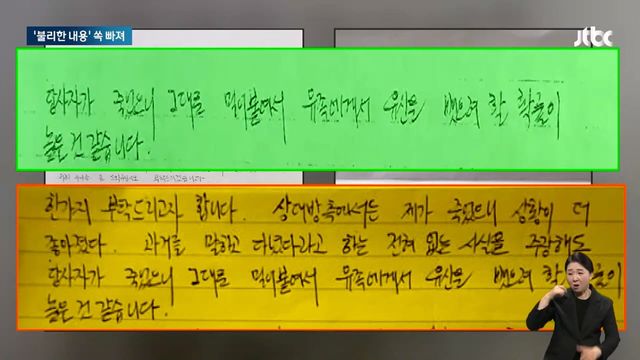 '불리한 내용' 쏙 빠져
jtbc
당사자가 죽었으니 그대로 밀어붙여서 유족에게서 유산을 뺏으려 할 확률이
높은 것 같습니다.
한가지 부탁드리고자 합니다. 상대방측에서는 제가 죽었으니 상황이 더
좋아졌다. 과거를 말하고 다녔다라고 하는 전혀 없는 사실을 주장해도
당사자가 죽었으니 그대로 밀어붙여서 유족에게서 유산을 뺏으려 할 확률이
높은 것 같습니다.